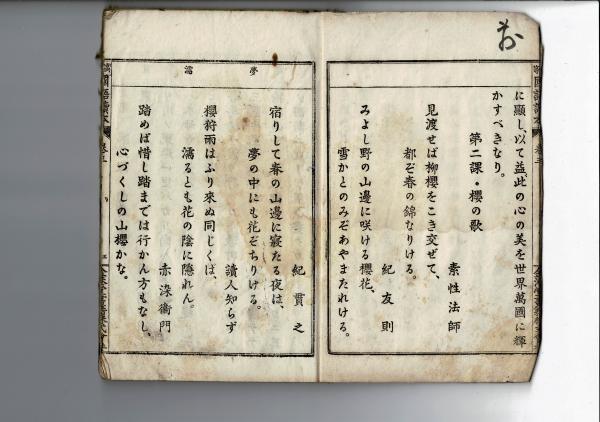 に顯し、以て益此の心の美を世界萬國に輝
かすべきなり。
第二課・櫻の歌
素性法師
見渡せば柳櫻をこき交ぜて、
都ぞ春の錦なりける。
紀友則
みよし野の山邊に咲ける櫻花、
雪かとのみぞあやまたれける。
夢
濡
紀貫之
宿りして春の山邊に寢たる夜は、
夢の中にも花ぞちりける。
讀人知らず
櫻狩雨はふり來ぬ同じくば、
濡るとも花の陰に隱れん。
赤染衞門
踏めば惜し踏までは行かん方もなし、
心づくしの山櫻かな。
國語讀本
卷三